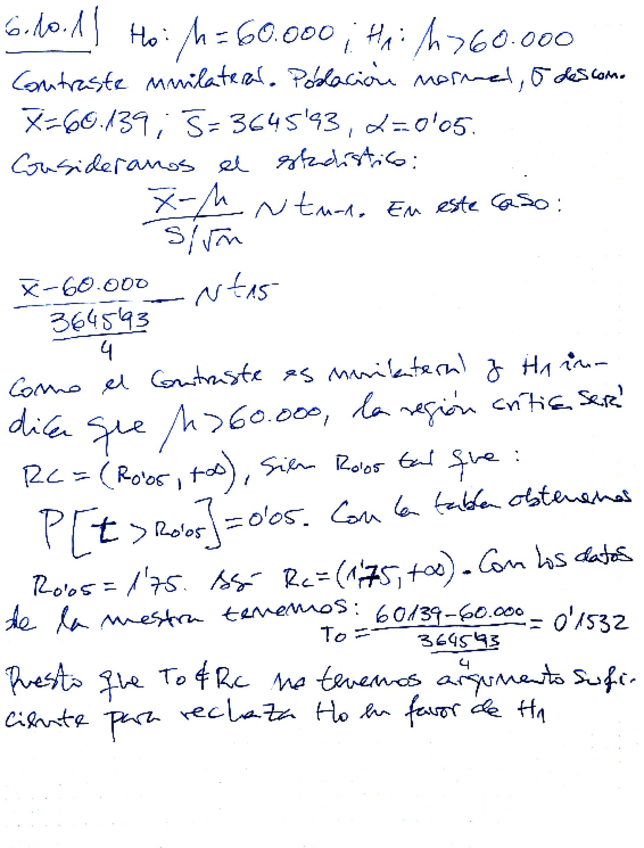 6.10.1) H₀: μ=60.000; H₁: μ>60.000
Contraste unilateral. Población normal, σ descon.
x̄=60.139; S̄=3645'93, α=0'05.
Consideramos el estadístico:
(x̄-μ)/(S/√n) ~ tn-1. En este caso:
(x̄-60.000)/(3645'93/4) ~ t15
Como el contraste es unilateral y H₁ in-
dica que μ>60.000, la región crítica será
RC=(R0'05,+∞), sien R0'05 tal que:
P[t>R0'05]=0'05. Con la tabla obtenemos
R0'05=1'75. Así Rc=(1'75,+∞). Con los datos
de la muestra tenemos: T0=(60139-60.000)/(3645'93/4)=0'1532
Puesto que T0∉Rc no tenemos argumento sufi-
ciente para rechaza H0 en favor de H1